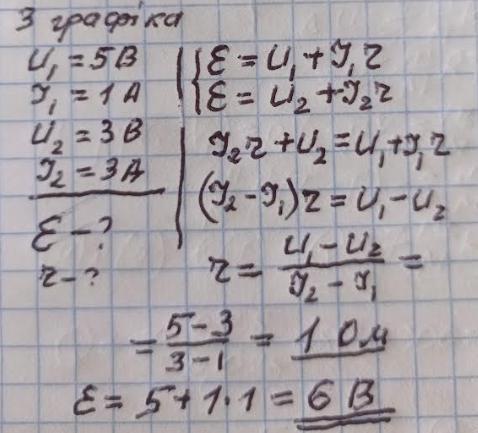 З графіка
U₁ = 5 В
I₁ = 1 А
U₂ = 3 В
I₂ = 3 А
ℰ – ?
r – ?
ℰ = U₁ + I₁r
ℰ = U₂ + I₂r
I₂r + U₂ = U₁ + I₁r
(I₂ – I₁)r = U₁ – U₂
r = (U₁ – U₂)/(I₂ – I₁) =
= (5 – 3)/(3 – 1) = 1 Ом
ℰ = 5 + 1·1 = 6 В